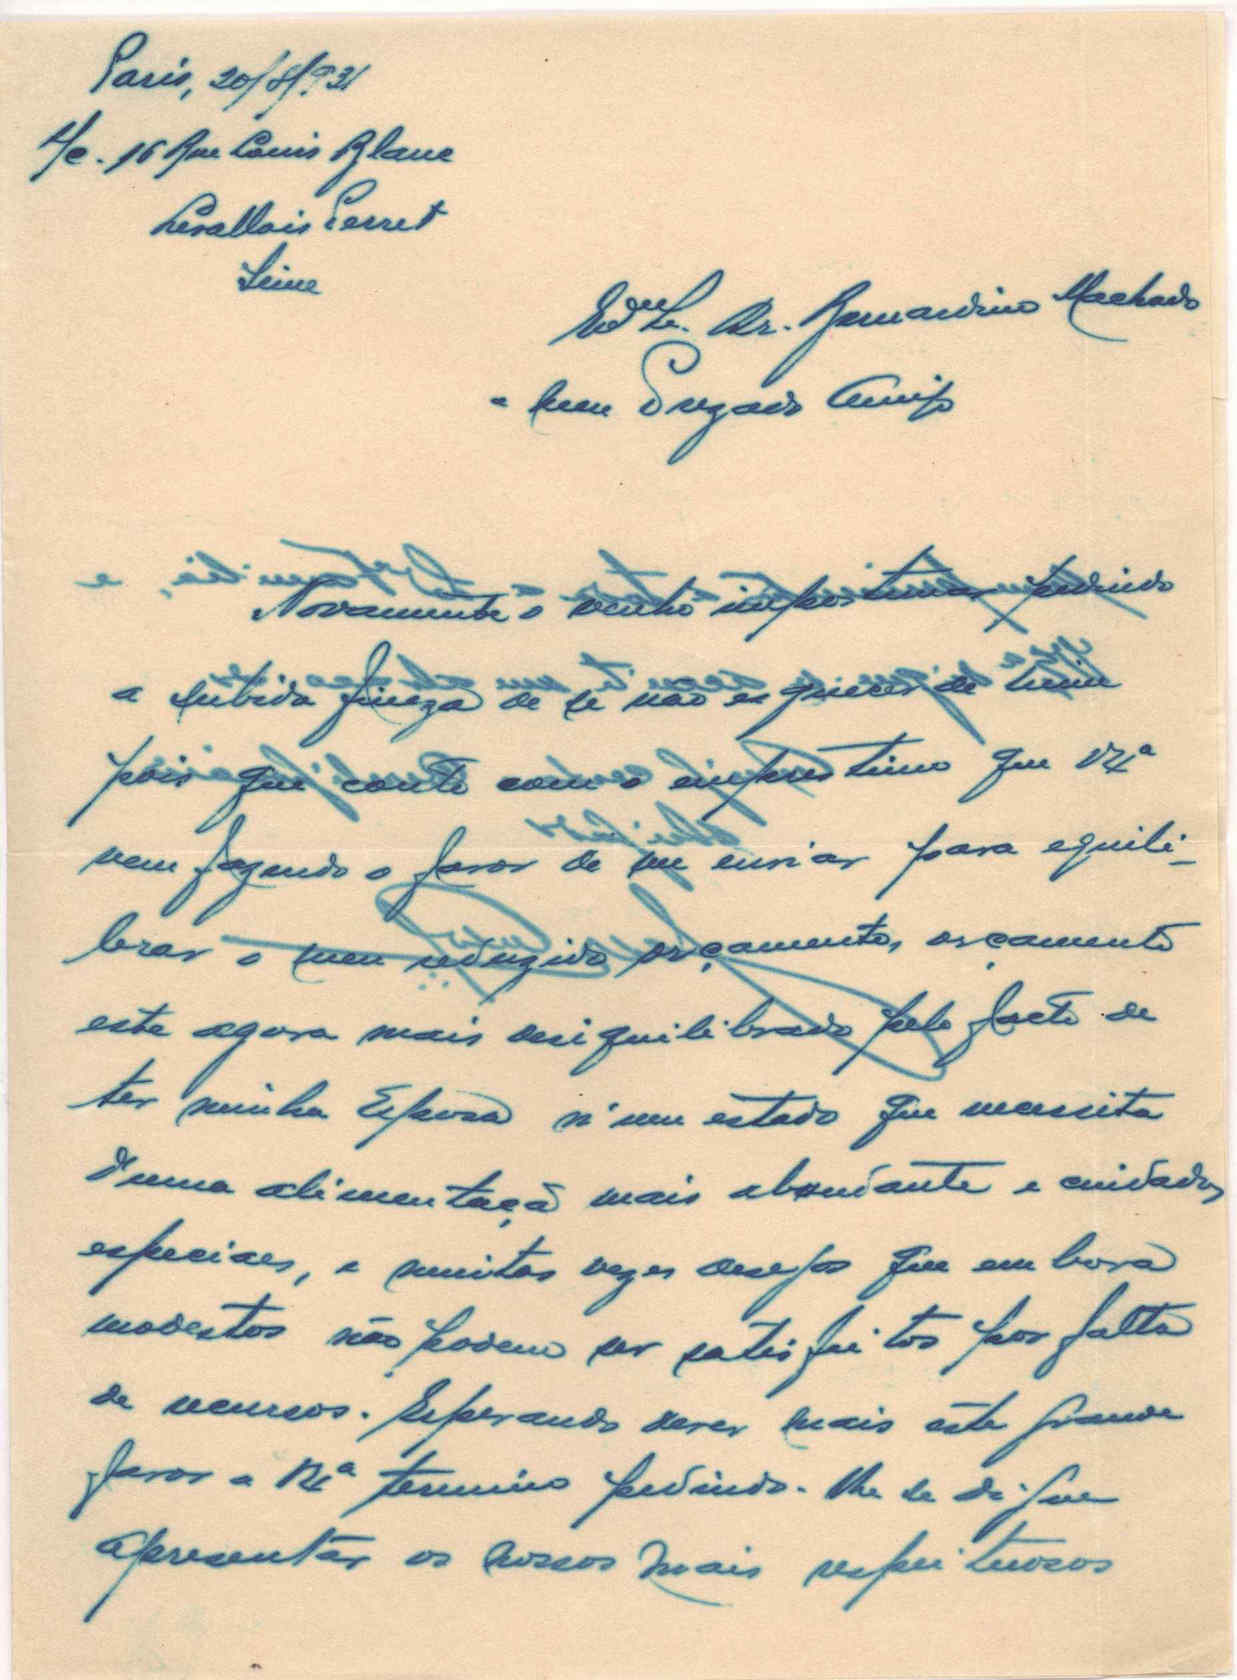 Paris, 20/8/931
A/c. 16 Rue Louis Blanc
Levallois Perret
Seine
Exmo Sr. Dr. Bernardino Machado
e meu Prezado Amigo
Novamente o venho importunar pedindo
a subida fineza de se não esquecer de mim
pois que conto com o emprestimo que V. Exª
vem fazendo o favor de me enviar para equili-
brar o meu reduzido orçamento, orçamento
este agora mais desiquilibrado pelo facto de
ter minha Esposa n'um estado que necessita
d'uma alimentação mais abundante e cuidados
especiaes, e muitas vezes desejos que embora
modestos não podem ser satisfeitos por falta
de recursos. Esperando dever mais este grande
favor a V. Exª termino pedindo-lhe se digne
apresentar os nossos mais respeituosos